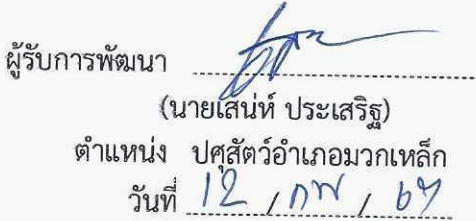 ผู้รับการพัฒนา
(นายเสน่ห์ ประเสริฐ)
ตำแหน่ง ปศุสัตว์อำเภอมวกเหล็ก
วันที่ 12 / กพ / 67